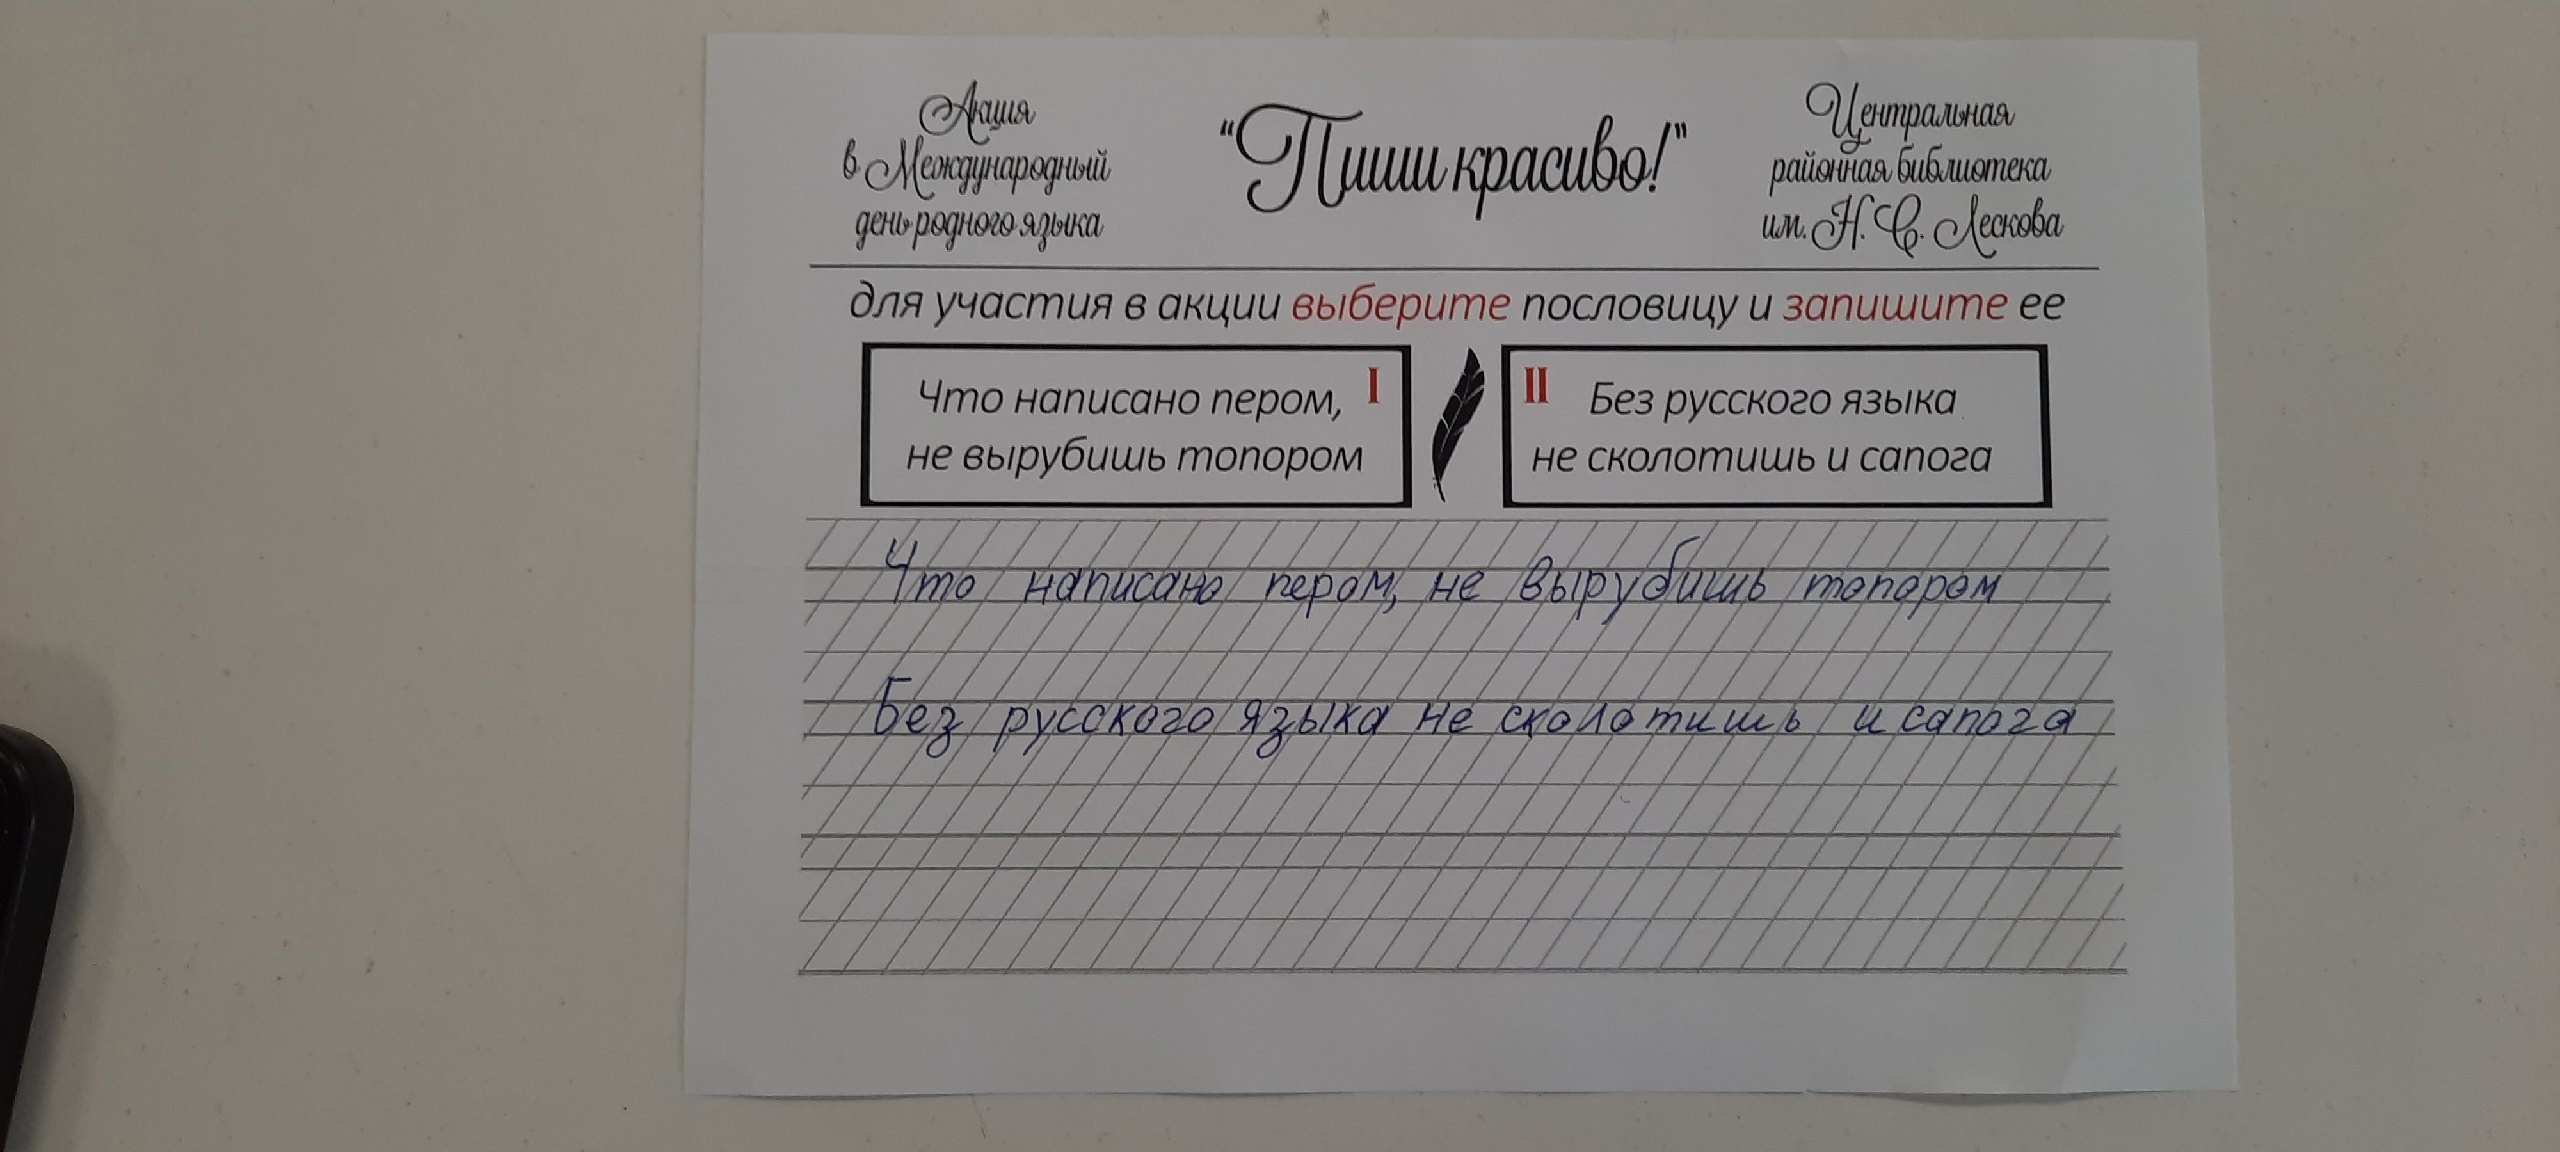 Акция
в Международный
день родного языка
"Пиши красиво!"
Центральная
районная библиотека
им. Н. С. Лескова
для участия в акции выберите пословицу и запишите ее
Что написано пером, I
не вырубишь топором
II Без русского языка
не сколотишь и сапога
Что написано пером, не вырубишь топором
Без русского языка не сколотишь и сапога